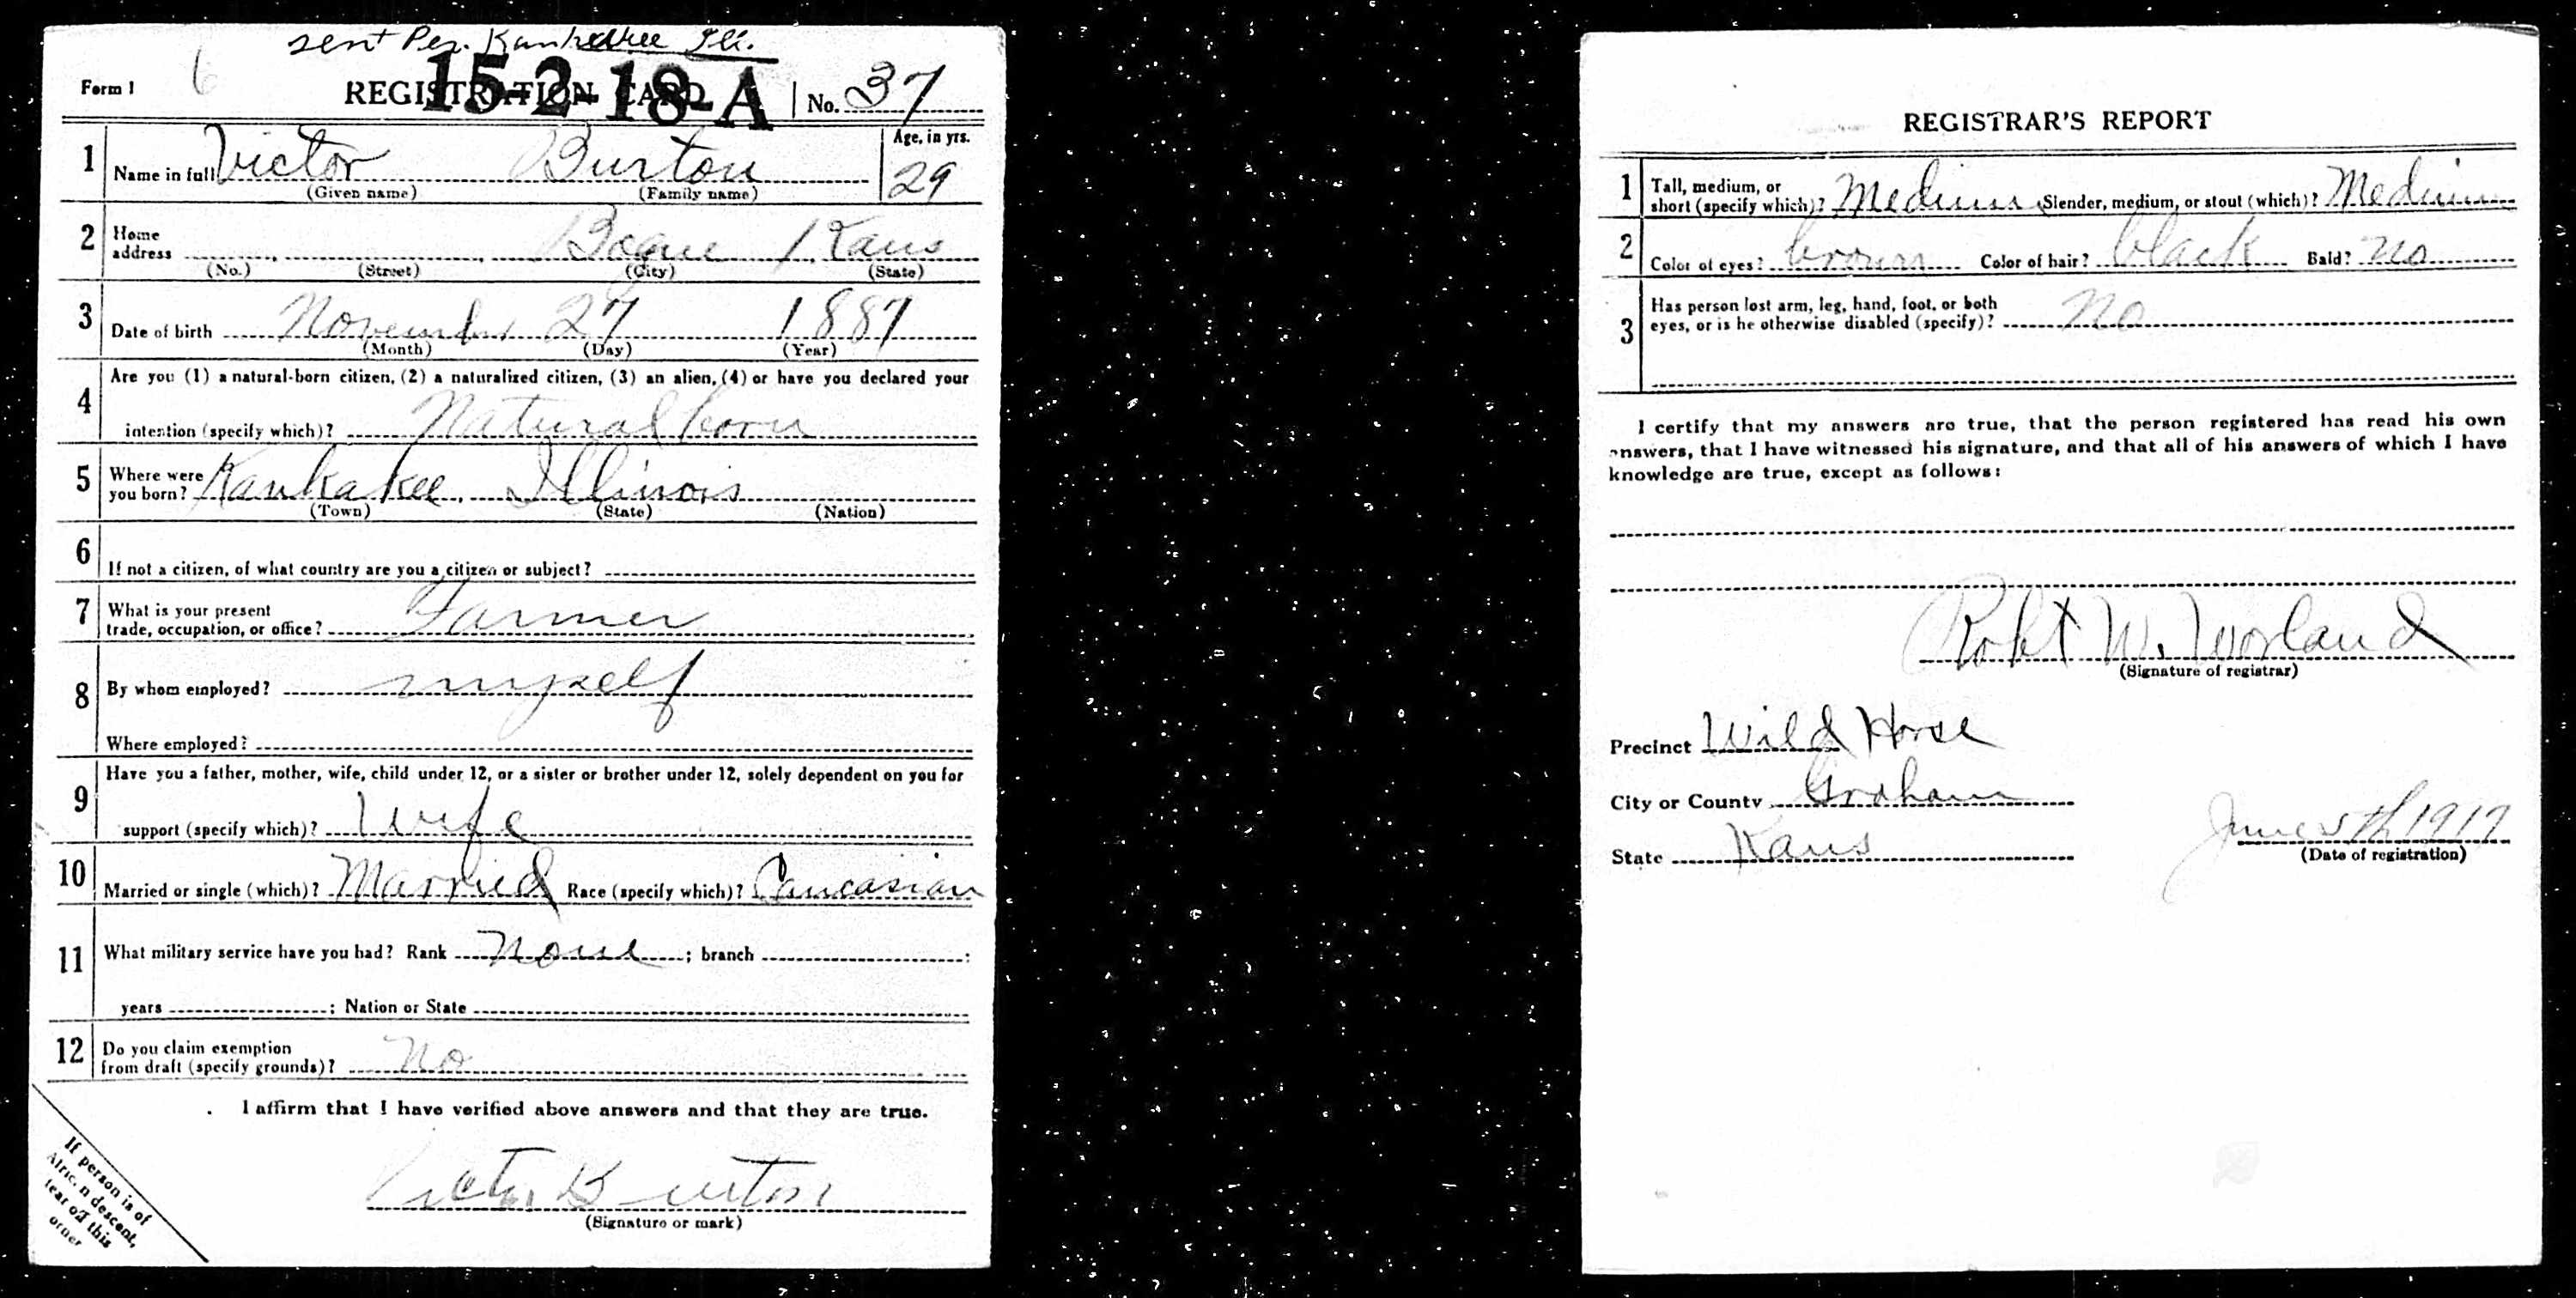 sent Per. Kankakee Ill.
Form 1 6 REGISTRATION CARD No. 37
15-2-18-A
1 Name in full Victor Burton Age, in yrs. 29
(Given name) (Family name)
2 Home address Bogue Kans
(No.) (Street) (City) (State)
3 Date of birth November 27 1887
(Month) (Day) (Year)
4 Are you (1) a natural-born citizen, (2) a naturalized citizen, (3) an alien, (4) or have you declared your
intention (specify which)? Natural born
5 Where were you born? Kankakee Illinois
(Town) (State) (Nation)
6 If not a citizen, of what country are you a citizen or subject?
7 What is your present
trade, occupation, or office? Farmer
8 By whom employed? myself
Where employed?
9 Have you a father, mother, wife, child under 12, or a sister or brother under 12, solely dependent on you for
support (specify which)? Wife
10 Married or single (which)? Married Race (specify which)? Caucasian
11 What military service have you had? Rank None ; branch ;
years ; Nation or State
12 Do you claim exemption
from draft (specify grounds)? No
I affirm that I have verified above answers and that they are true.
Victor Burton
(Signature or mark)
If person is of
African descent,
tear off this
corner
REGISTRAR'S REPORT
1 Tall, medium, or
short (specify which)? Medium Slender, medium, or stout (which)? Medium
2 Color of eyes? brown Color of hair? black Bald? No
3 Has person lost arm, leg, hand, foot, or both
eyes, or is he otherwise disabled (specify)? No
I certify that my answers are true, that the person registered has read his own
answers, that I have witnessed his signature, and that all of his answers of which I have
knowledge are true, except as follows:
Robt W. Worland
(Signature of registrar)
Precinct Wild Horse
City or County Graham
State Kans
June 5th 1917
(Date of registration)